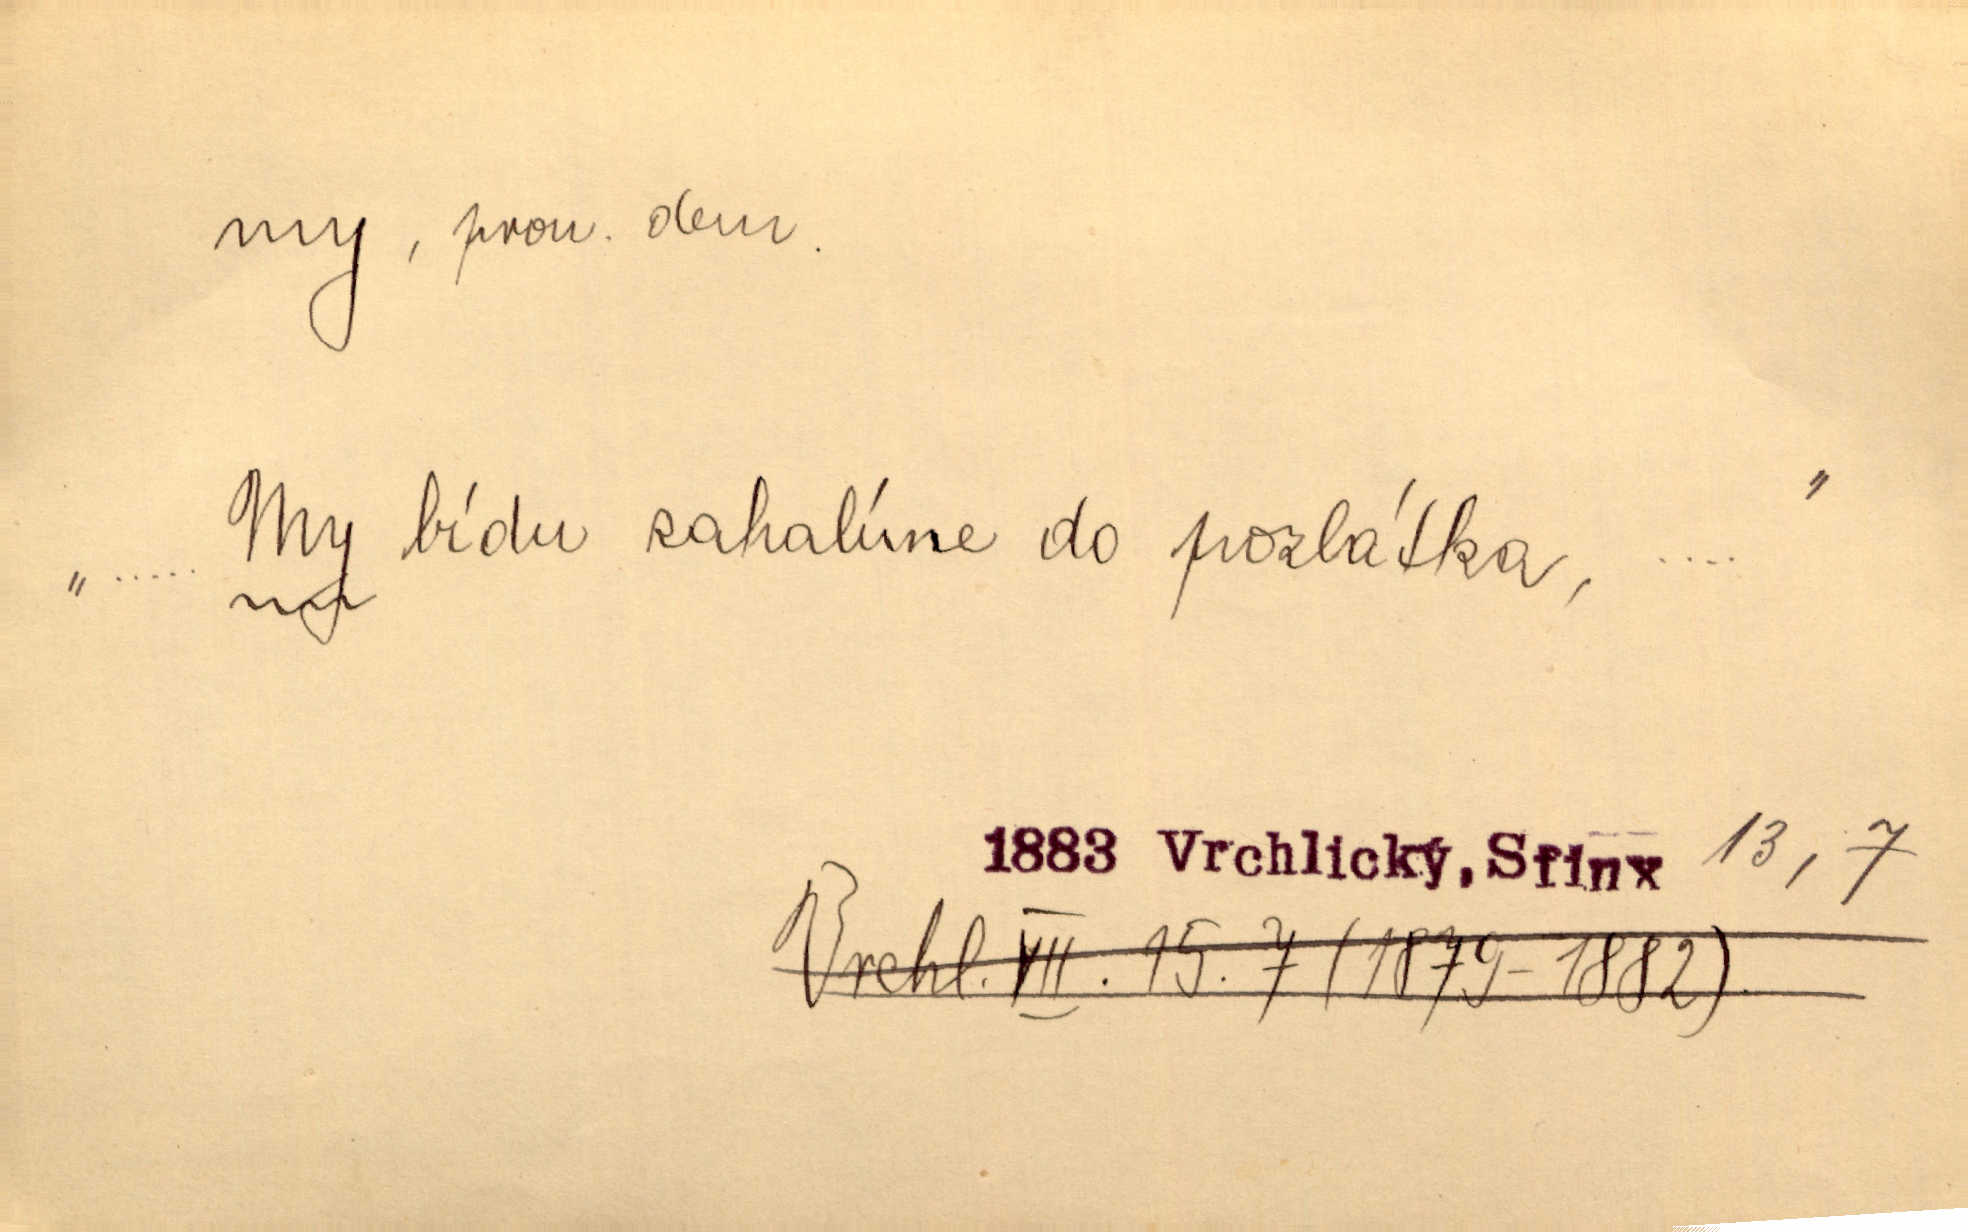 my, pron. dem.
„ ..... My bídu zahalíme do pozlátka, .... "
1883 Vrchlický, Sfinx 13, 7
Vrchl. VII. 15. 7 (1879-1882).